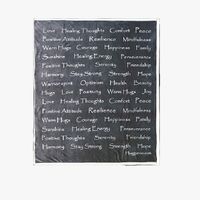 Love Healing Thoughts Comfort Peace
Positive Attitude Resilience Mindfulness
Warm Hugs Courage Happiness Family
Sunshine Healing Energy Perseverance
Positive Thoughts Serenity Friendship
Harmony Stay Strong Strength Hope
Warmoriginal Optimism Health Beauty
Hugs Love Positivity Warm Hugs Joy
Love Healing Thoughts Comfort Peace
Positive Attitude Resilience Mindfulness
Warm Hugs Courage Happiness Family
Sunshine Healing Energy Perseverance
Positive Thoughts Serenity Friendship
Harmony Stay Strong Strength Hope
Happiness